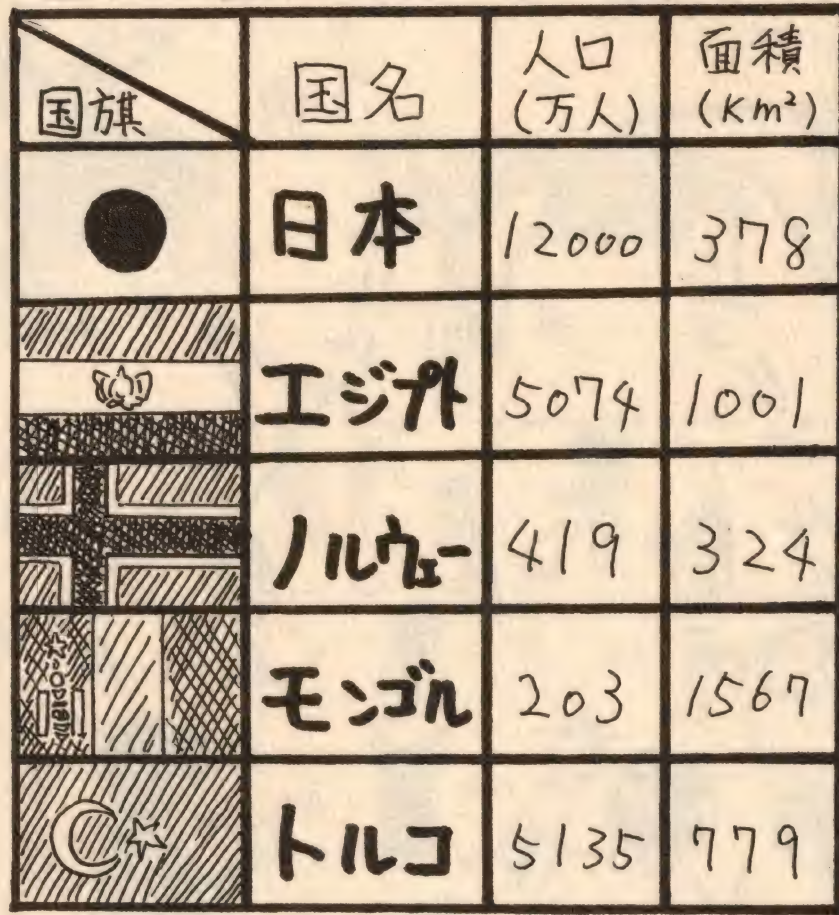 国旗
国名
人口
(万人)
面積
(Km²)
日本
12000
378
エジプト
5074
1001
ノルウェー
419
324
モンゴル
203
1567
トルコ
5135
779